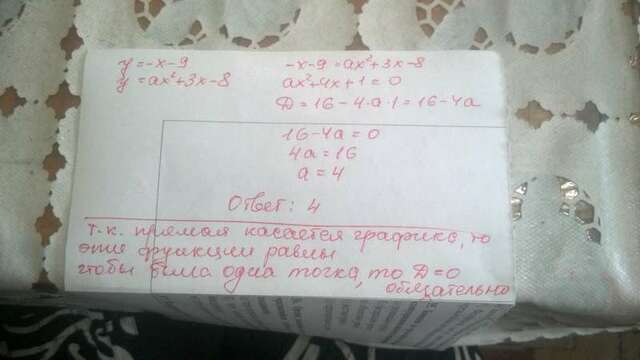 y = -x - 9
y = ax² + 3x - 8
-x - 9 = ax² + 3x - 8
ax² + 4x + 1 = 0
D = 16 - 4·a·1 = 16 - 4a
16 - 4a = 0
4a = 16
a = 4
Ответ: 4
т.к. прямая касается графика, то
эти функции равны
чтобы была одна точка, то D = 0
обязательно